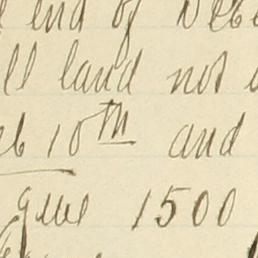 end of
ll land not
10th and
give 1500